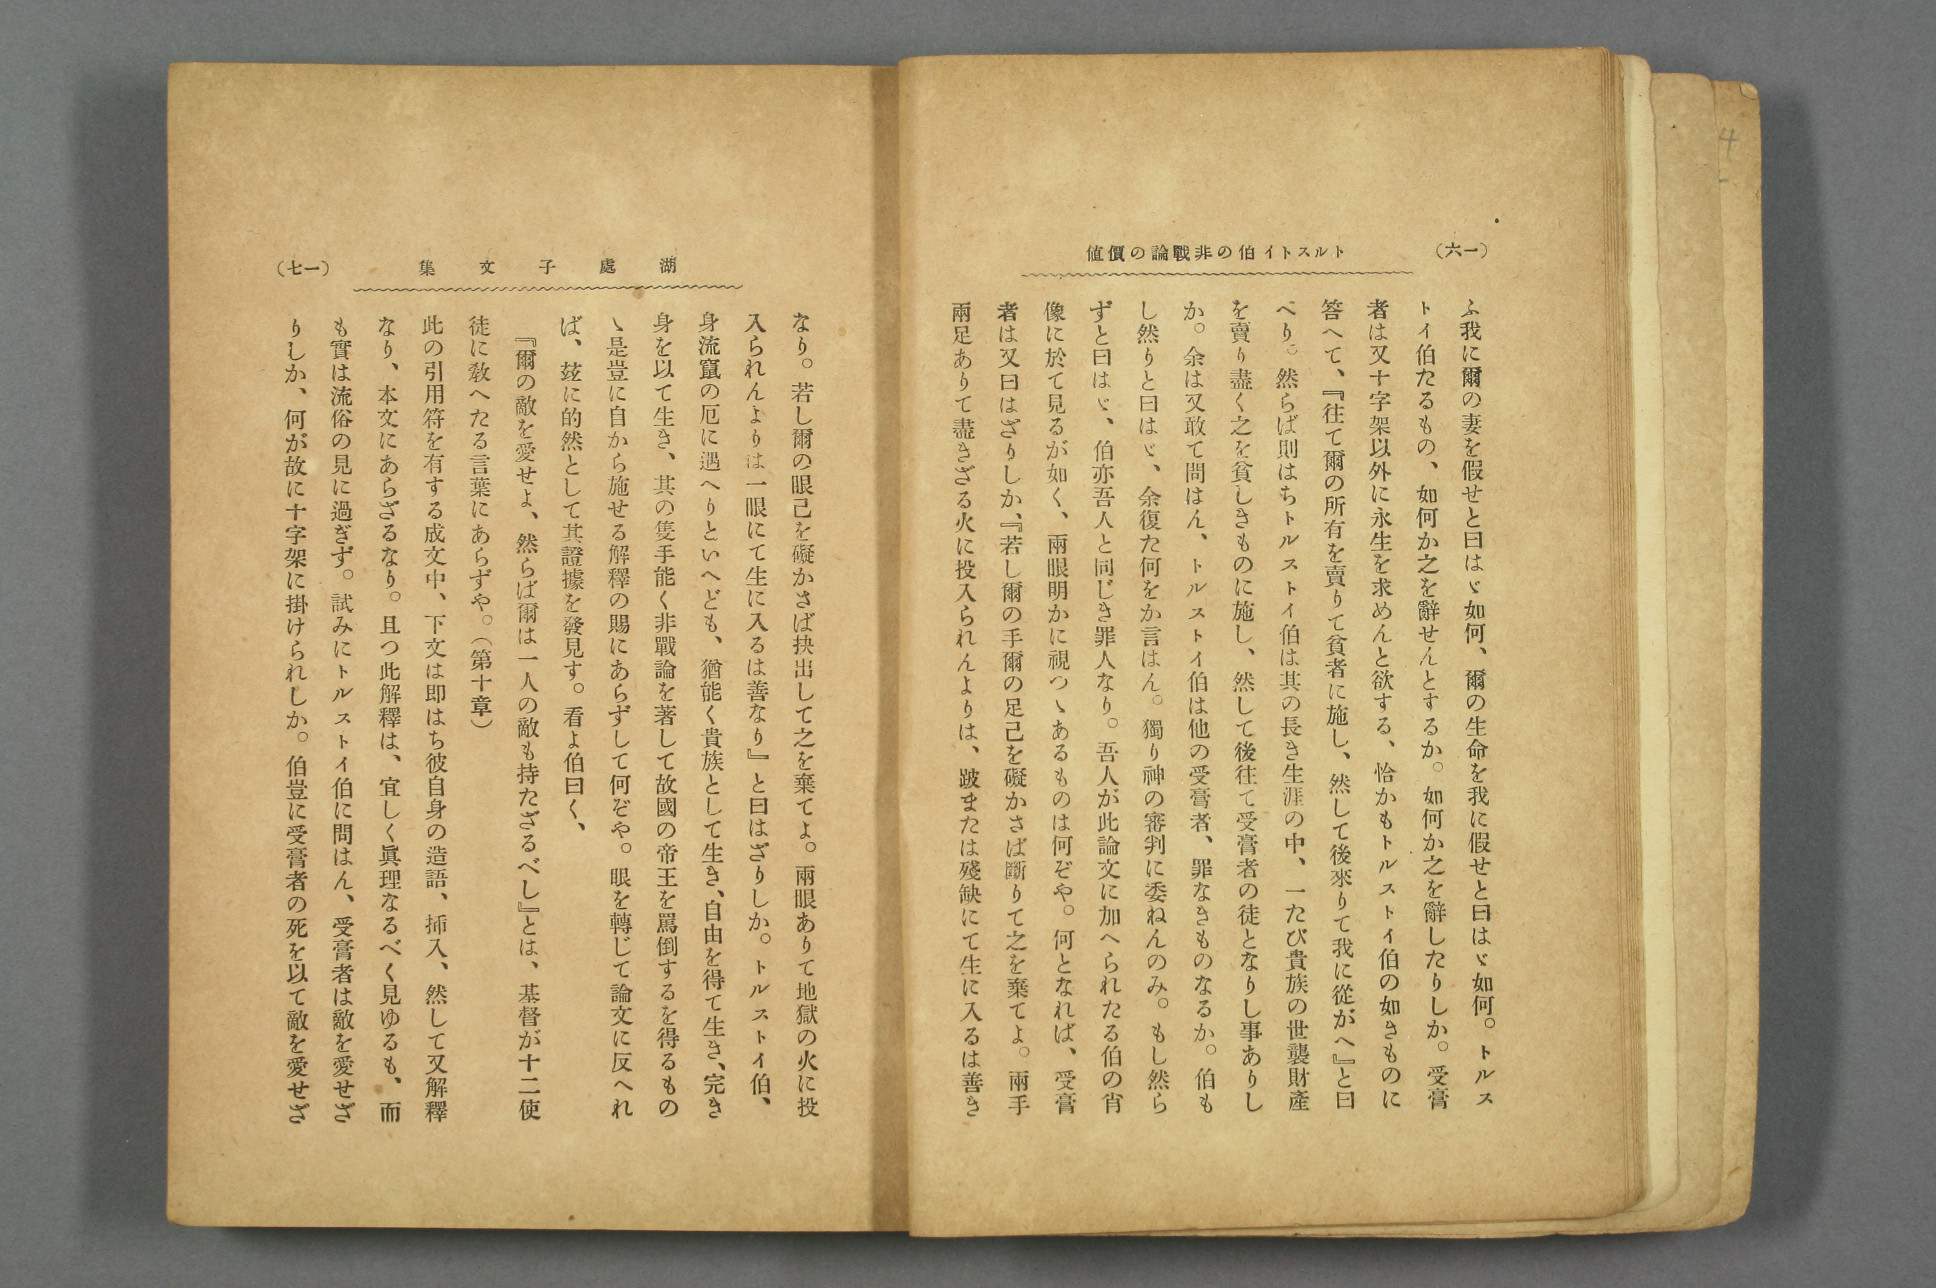 (一六)
トルストイ伯の非戰論の價値
ふ我に爾の妻を假せと曰はゞ如何、爾の生命を我に假せと曰はゞ如何。トルス
トイ伯たるもの、如何か之を辭せんとするか。如何か之を辭したりしか。受膏
者は又十字架以外に永生を求めんと欲する、恰かもトルストイ伯の如きものに
答へて、『往て爾の所有を賣りて貧者に施し、然して後來りて我に從がへ』と曰
べり。然らば則はちトルストイ伯は其の長き生涯の中、一たび貴族の世襲財產
を賣り盡く之を貧しきものに施し、然して後往て受膏者の徒となりし事ありし
か。余は又敢て問はん、トルストイ伯は他の受膏者、罪なきものなるか。伯も
し然りと曰はゞ、余復た何をか言はん。獨り神の審判に委ねんのみ。もし然ら
ずと曰はゞ、伯亦吾人と同じき罪人なり。吾人が此論文に加へられたる伯の肖
像に於て見るが如く、兩眼明かに視つゝあるものは何ぞや。何となれば、受膏
者は又曰はざりしか、『若し爾の手爾の足己を礙かさば斷りて之を棄てよ。兩手
兩足ありて盡きざる火に投入られんよりは、跛または殘缺にて生に入るは善き
湖處子文集
(一七)
なり。若し爾の眼己を礙かさば抉出して之を棄てよ。兩眼ありて地獄の火に投
入られんよりは一眼にて生に入るは善なり』と曰はざりしか。トルストイ伯、
身流竄の厄に遇へりといへども、猶能く貴族として生き、自由を得て生き、完き
身を以て生き、其の隻手能く非戰論を著して故國の帝王を罵倒するを得るもの
ゝ是豈に自から施せる解釋の賜にあらずして何ぞや。眼を轉じて論文に反へれ
ば、玆に的然として其證據を發見す。看よ伯曰く、
『爾の敵を愛せよ、然らば爾は一人の敵も持たざるべし』とは、基督が十二使
徒に敎へたる言葉にあらずや。(第十章)
此の引用符を有する成文中、下文は即はち彼自身の造語、揷入、然して又解釋
なり、本文にあらざるなり。且つ此解釋は、宜しく眞理なるべく見ゆるも、而
も實は流俗の見に過ぎず。試みにトルストイ伯に問はん、受膏者は敵を愛せざ
りしか、何が故に十字架に掛けられしか。伯豈に受膏者の死を以て敵を愛せざ